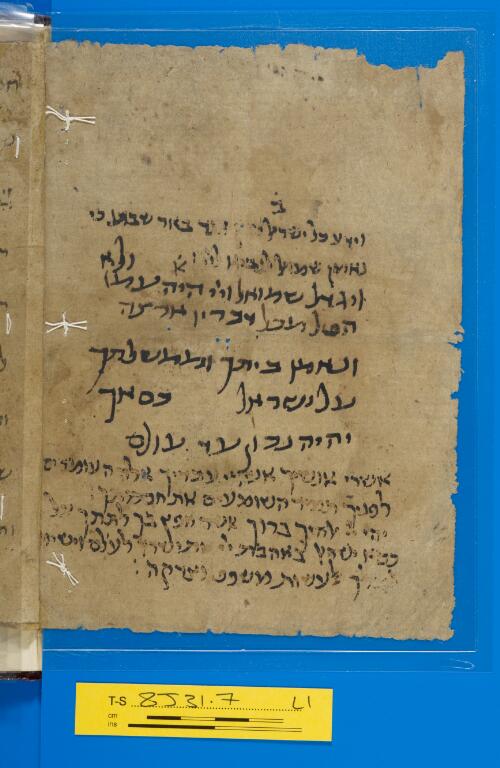 ב
וידע כל ישראל באר שבע כי
נאמן שמואל לנביא ולא
ויגדל שמואל ויי היה עמו
הפיל מכל דבריו ארצה
ונאמן ביתך וממשלתך
על ישראל כסאך
יהיה נכון עד עולם
אשרי אנשיך אשרי עבדיך אלה העומדים
לפניך תמיד השומעים את חכמתך
יהי אלהיך ברוך אשר חפץ בך לתתך על
כסא ישראל באהבת יי את ישראל לעולם וישימך
לעשות משפט וצדקה :
T-S 8J31.7 L1
cm
ins